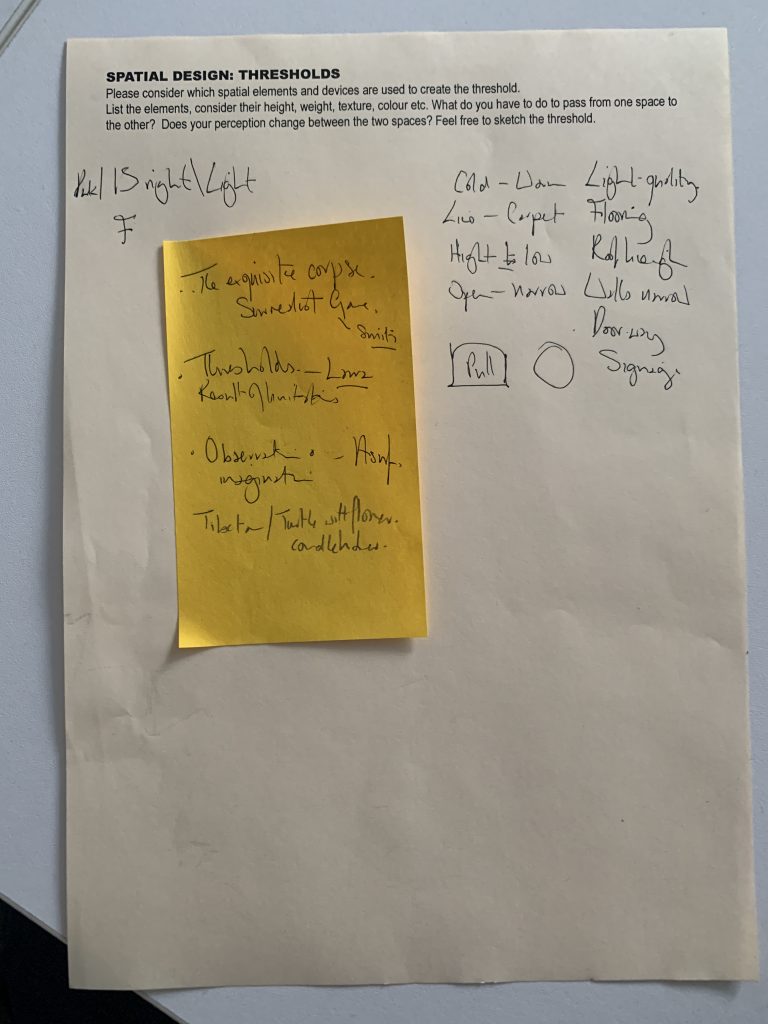 SPATIAL DESIGN: THRESHOLDS
Please consider which spatial elements and devices are used to create the threshold.
List the elements, consider their height, weight, texture, colour etc. What do you have to do to pass from one space to
the other? Does your perception change between the two spaces? Feel free to sketch the threshold.
Dark/ Bright\Light
F
Cold - Warm Light-quality
Lino - Carpet Flooring
Hight to low Roof heigh
Open - narrow Walls narrow
Door-way
Pull Signeig.
The exquisite corpse.
Surrealist Game.
Thresholds -
Result of limitations
Observation -
imagination
Tibetan / Turtle with flower.
candleholder.